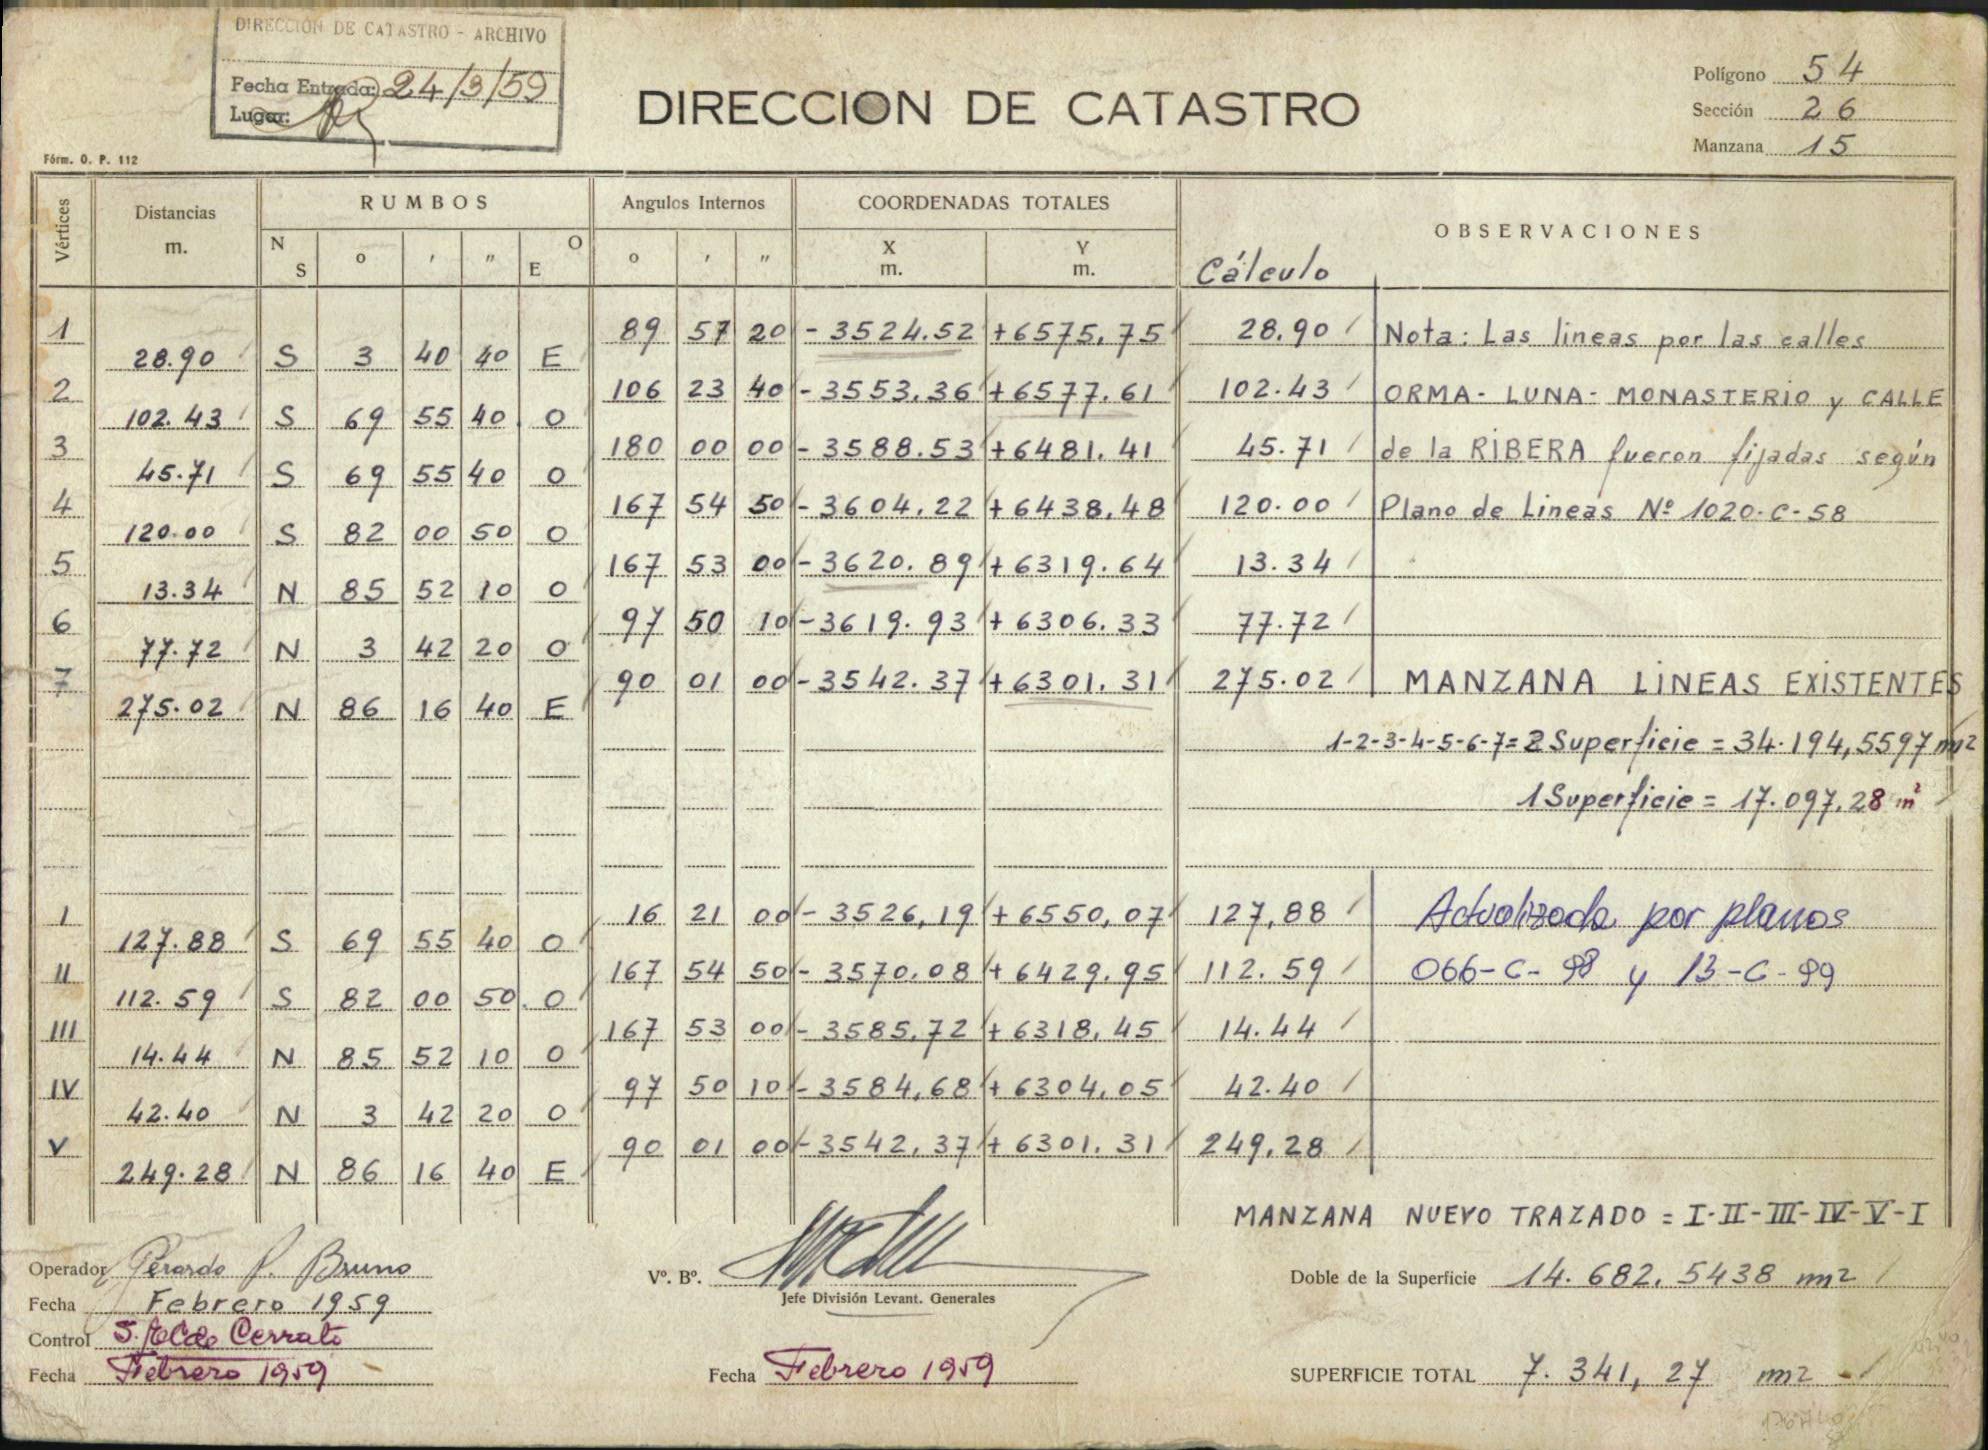 DIRECCIÓN DE CATASTRO - ARCHIVO
Fecha Entrada: 24/3/59
Lugar:
Fórm. O. P. 112
DIRECCION DE CATASTRO
Polígono 54
Sección 26
Manzana 15
Vértices Distancias m. RUMBOS Angulos Internos COORDENADAS TOTALES OBSERVACIONES
N S o ' " O E o ' " X m. Y m. Cálculo
1 89 57 20 - 3524.52 +6575,75 28.90 Nota: Las lineas por las calles
28.90 S 3 40 40 E
2 106 23 40 - 3553,36 +6577.61 102.43 ORMA - LUNA - MONASTERIO y CALLE
102.43 S 69 55 40 O
3 180 00 00 - 3588.53 +6481.41 45.71 de la RIBERA fueron fijadas según
45.71 S 69 55 40 O
4 167 54 50 - 3604,22 +6438,48 120.00 Plano de Lineas Nº 1020-C-58
120.00 S 82 00 50 O
5 167 53 00 - 3620.89 +6319.64 13.34
13.34 N 85 52 10 O
6 97 50 10 -3619.93 +6306.33 77.72
77.72 N 3 42 20 O
7 90 01 00 -3542.37 +6301.31 275.02 MANZANA LINEAS EXISTENTES
275.02 N 86 16 40 E
1-2-3-4-5-6-7= 2 Superficie = 34.194,5597 m2
1 Superficie = 17.097,28 m²
I 16 21 00 - 3526,19 +6550,07 127,88 Actualizada por planos
127.88 S 69 55 40 O
II 167 54 50 - 3570.08 +6429.95 112.59 066-C-98 y 13-C-99
112.59 S 82 00 50 O
III 167 53 00 - 3585,72 +6318,45 14.44
14.44 N 85 52 10 O
IV 97 50 10 - 3584,68 +6304,05 42.40
42.40 N 3 42 20 O
V 90 01 00 -3542,37 +6301.31 249,28
249.28 N 86 16 40 E
MANZANA NUEVO TRAZADO = I-II-III-IV-V-I
Operador Gerardo P. Bruno
Fecha Febrero 1959
Control Cerrato
Fecha Febrero 1959
Vº. Bº.
Jefe División Levant. Generales
Fecha Febrero 1959
Doble de la Superficie 14.682.5438 m2
SUPERFICIE TOTAL 7.341,27 m2